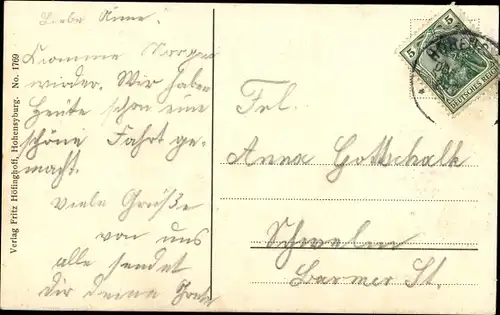 Liebe Anne!
Komme Morgen
wieder. Wir haben
Heute schon eine
schöne Fahrt ge-
macht.
Viele Grüße
von uns
alle sendet
Dir deine Grete
Verlag Fritz Höfinghoff, Hohensyburg. No. 1769
5 5
DEUTSCHES REICH
Frl.
Anna Gottschalk
Schwelm
Barmer St.